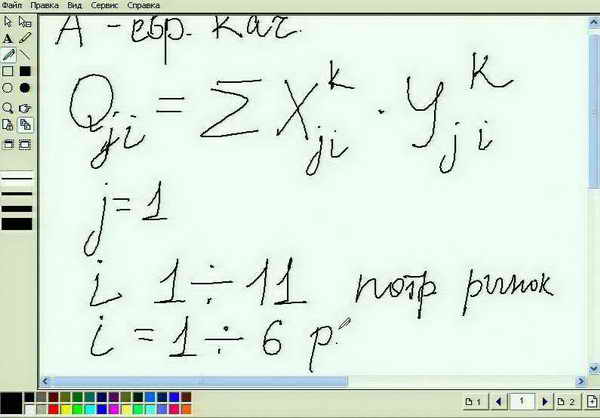 Файл Правка Вид Сервис Справка
А - евр. кач.
Q_{ji} = Σ X_{ji}^{k} · Y_{ji}^{k}
j = 1
i 1 ÷ 11 потр ринок
i = 1 ÷ 6 р.
1 1 2